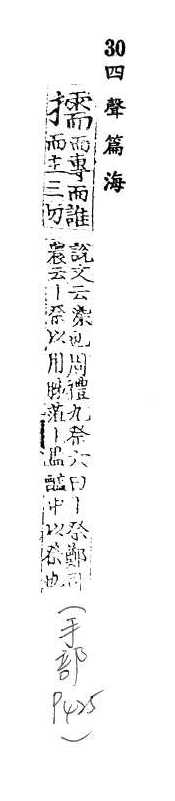 30 四聲篇海
擩
而專而誰
而主三切
說文云染也周禮九祭六曰丨祭鄭司
農云丨祭以用肝肺丨塩醢中以祭也
(手部
P425)